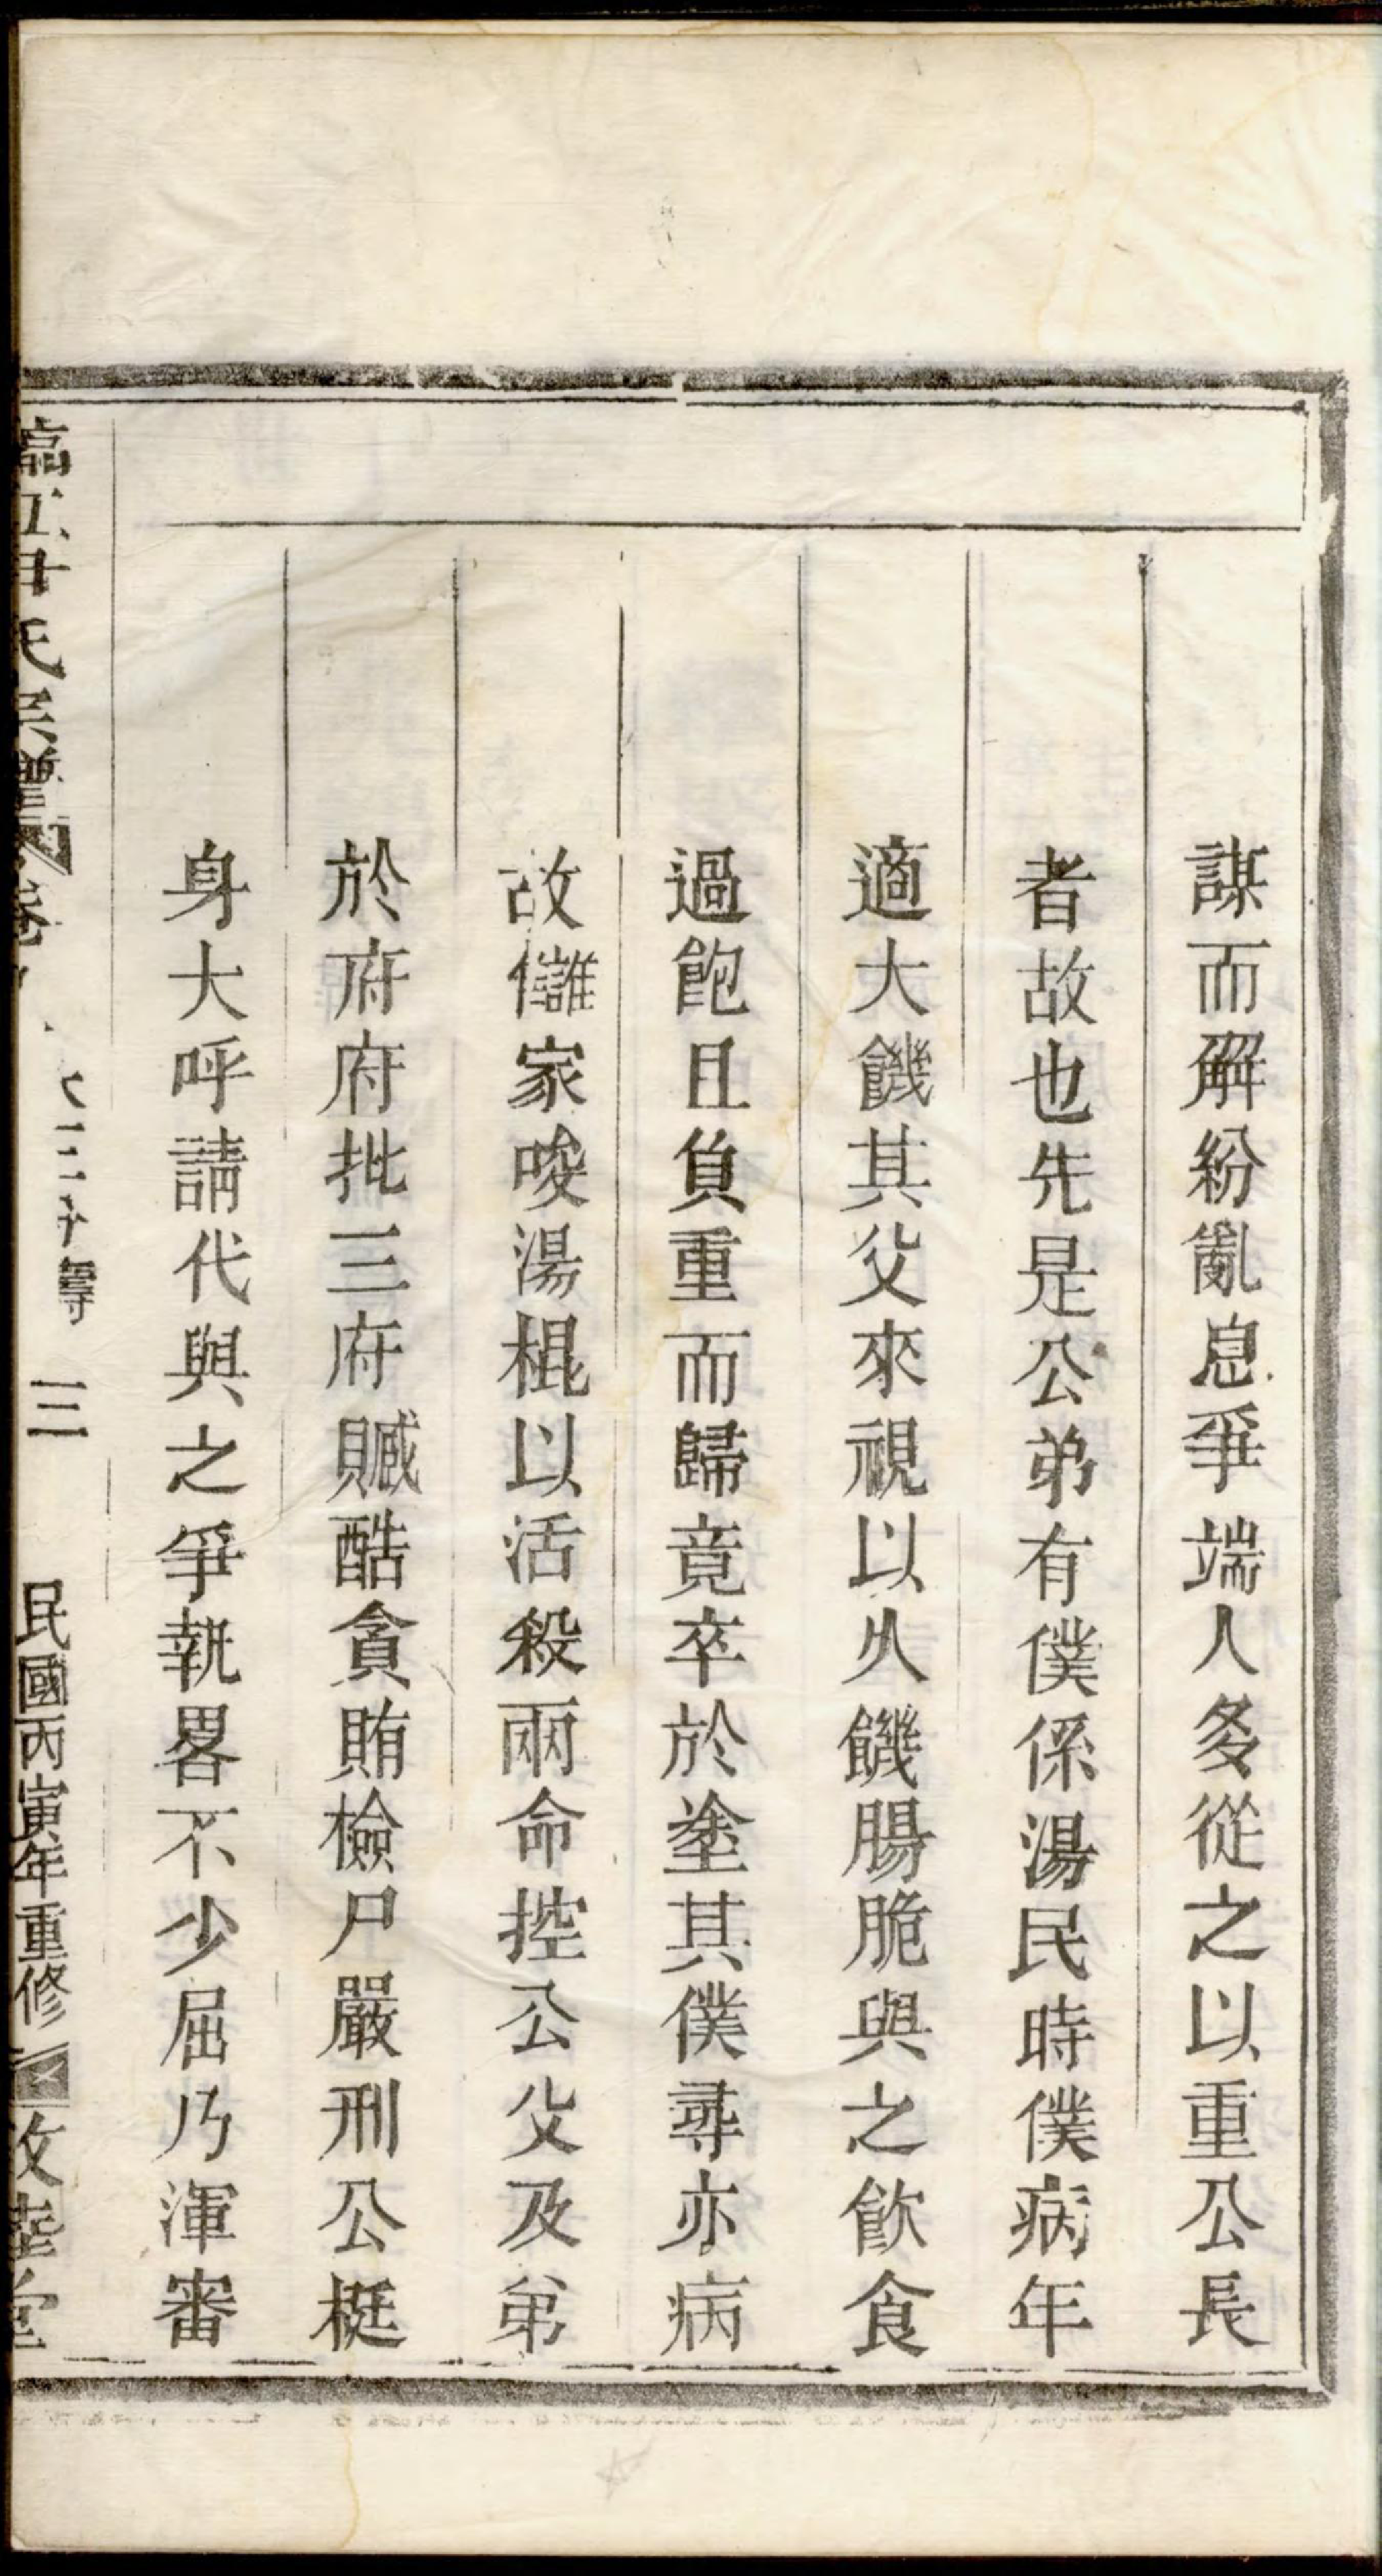 謀而解紛亂息爭端人多從之以重公長
者故也先是公弟有僕係湯民時僕病年
適大饑其父來視以久饑腸脆與之飲食
過飽且負重而歸竟卒於塗其僕尋亦病
故讎家唆湯棍以活殺兩命控公父及弟
於府府批三府贓酷貪賄檢尸嚴刑公挺
身大呼請代與之爭執畧不少屈乃渾審
氏 卷 三 民國丙寅年重修 堂